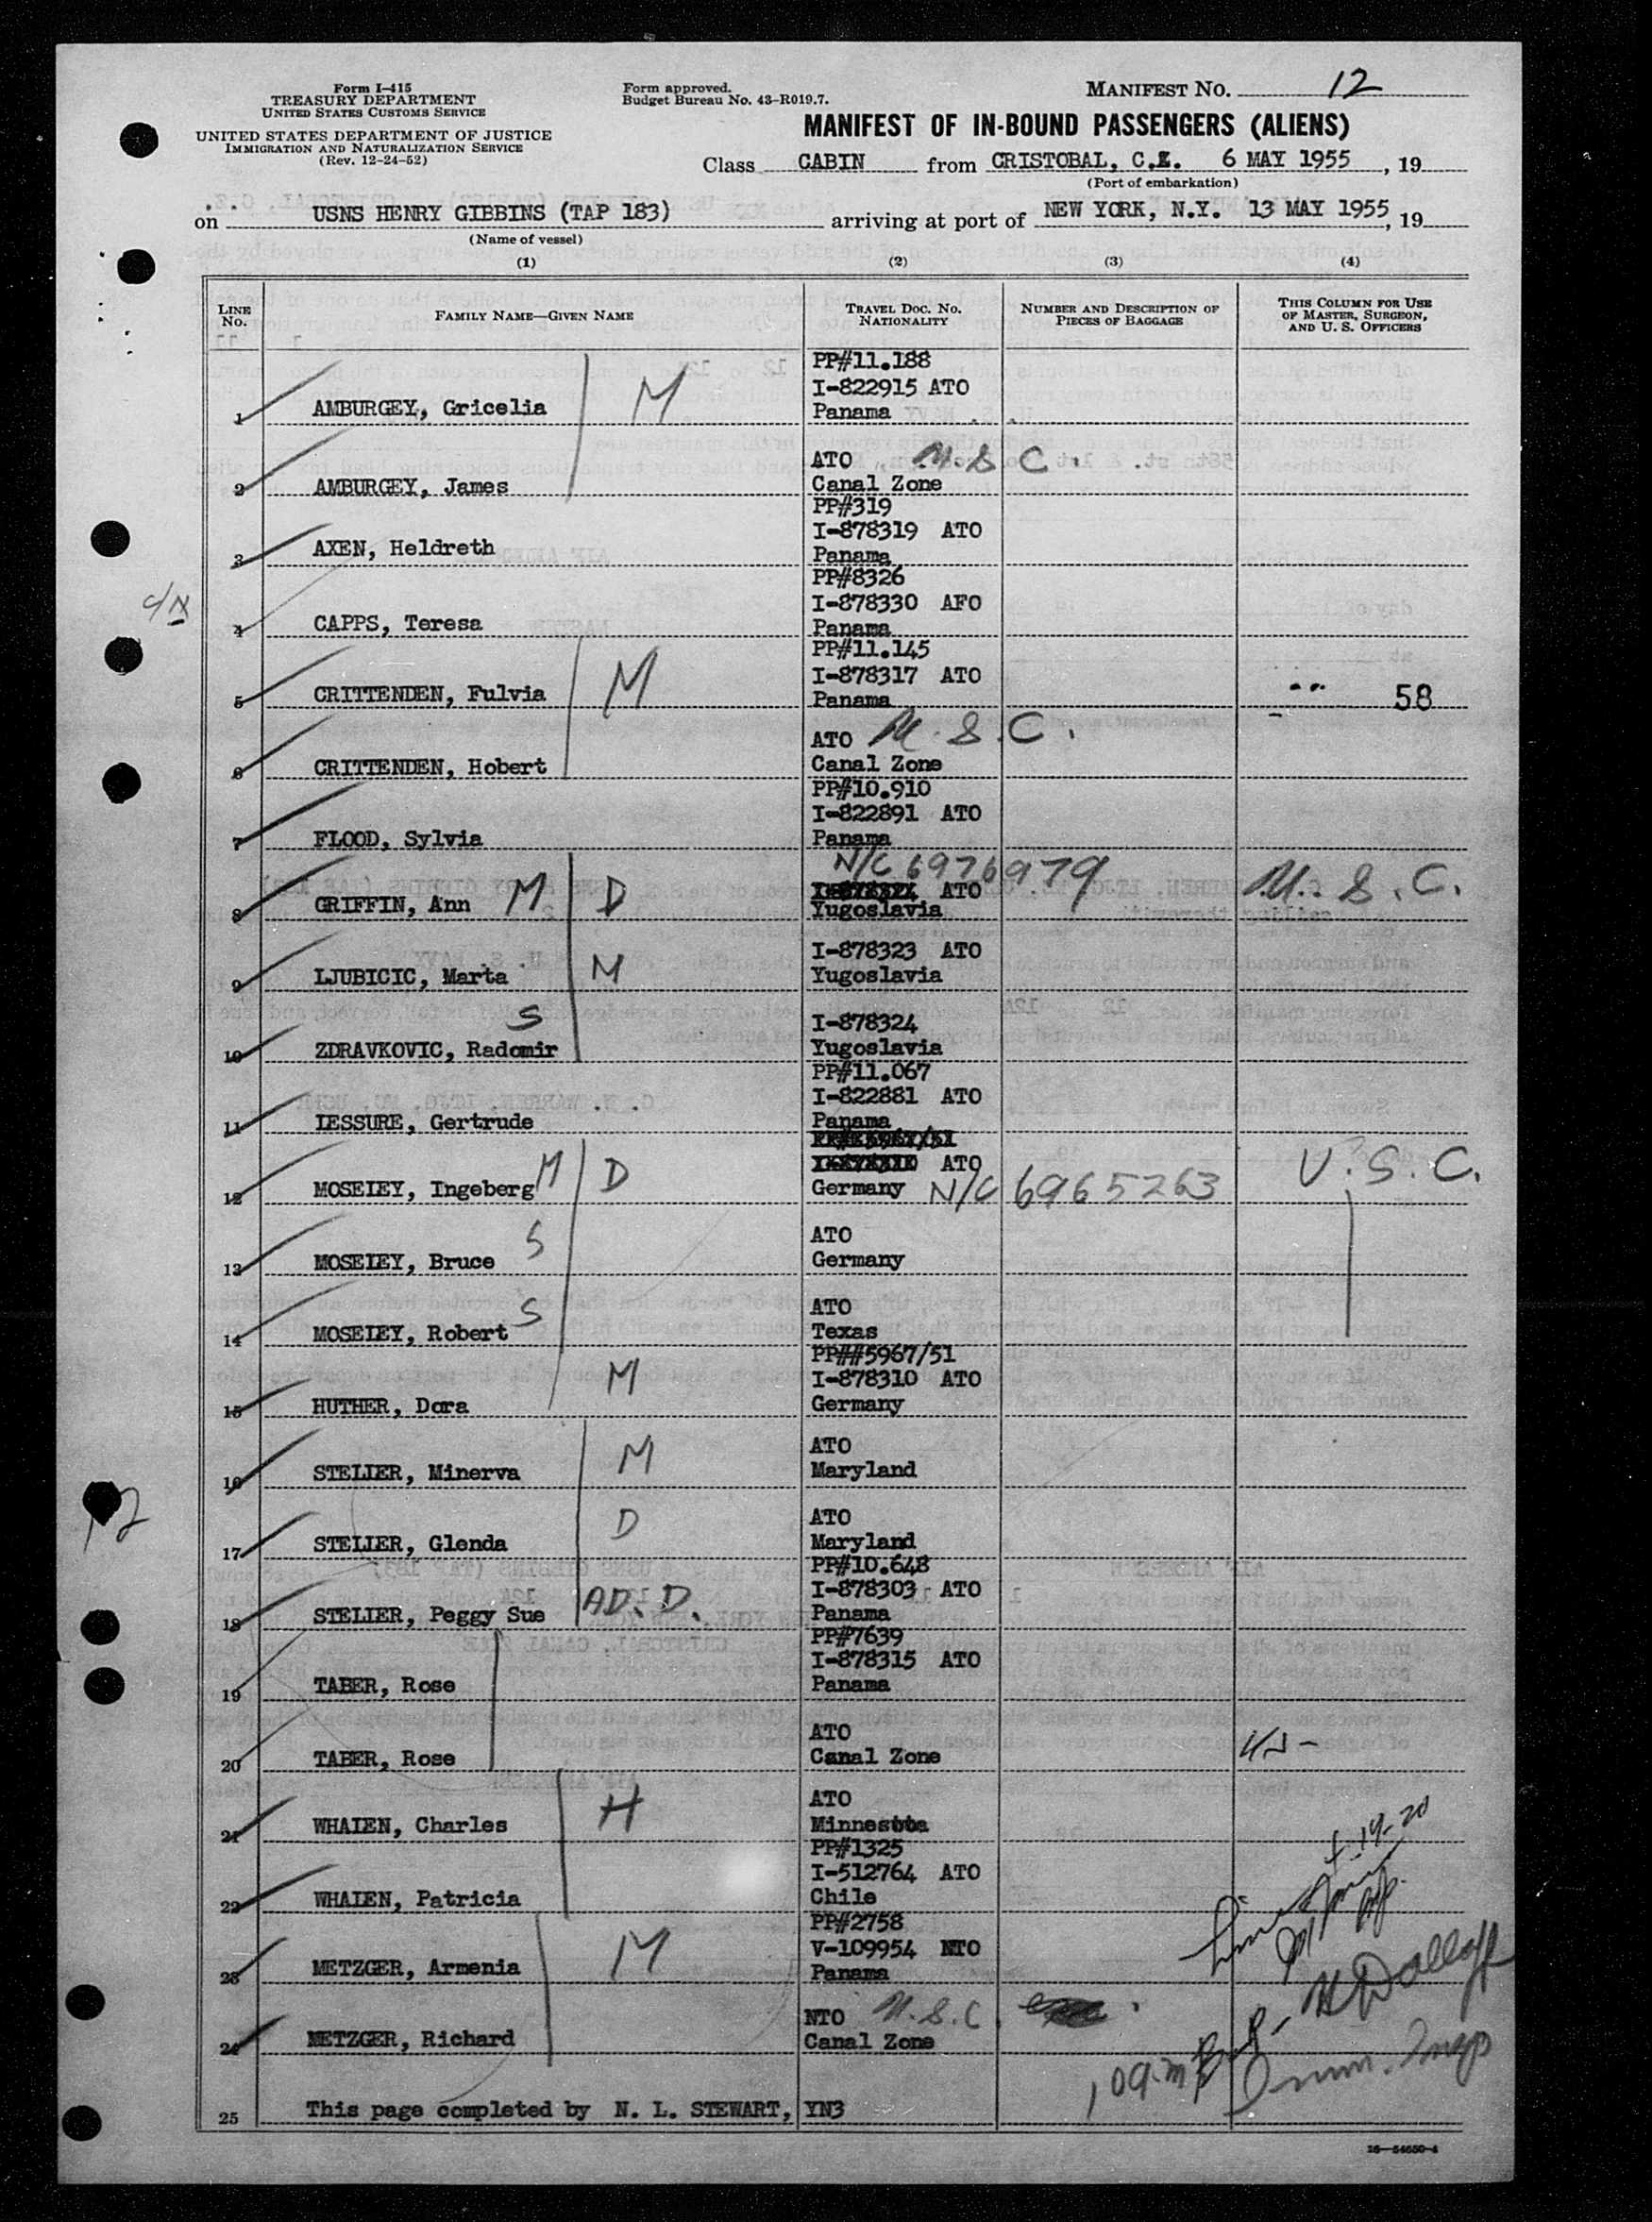 Form I-415
TREASURY DEPARTMENT
UNITED STATES CUSTOMS SERVICE
UNITED STATES DEPARTMENT OF JUSTICE
IMMIGRATION AND NATURALIZATION SERVICE
(Rev. 12-24-52)
Form approved.
Budget Bureau No. 43-R019.7.
MANIFEST NO. 12
MANIFEST OF IN-BOUND PASSENGERS (ALIENS)
Class CABIN from CRISTOBAL, C.Z. 6 MAY 1955, 19
(Port of embarkation)
on USNS HENRY GIBBINS (TAP 183) arriving at port of NEW YORK, N.Y. 13 MAY 1955, 19
(Name of vessel)
(1) (2) (3) (4)
LINE No. FAMILY NAME—GIVEN NAME TRAVEL DOC. NO. NATIONALITY NUMBER AND DESCRIPTION OF PIECES OF BAGGAGE THIS COLUMN FOR USE OF MASTER, SURGEON, AND U. S. OFFICERS
PP#11.188
I-822915 ATO
1 AMBURGEY, Gricelia M Panama
ATO U.S.C.
2 AMBURGEY, James Canal Zone
PP#319
I-878319 ATO
3 AXEN, Heldreth Panama
PP#8326
I-878330 AFO
4 CAPPS, Teresa Panama
PP#11.145
I-878317 ATO
5 CRITTENDEN, Fulvia M Panama 58
ATO U.S.C.
6 CRITTENDEN, Hobert Canal Zone
PP#10.910
I-822891 ATO
7 FLOOD, Sylvia Panama
N/C 6976979
ATO U.S.C.
8 GRIFFIN, Ann M D Yugoslavia
I-878323 ATO
9 LJUBICIC, Marta M Yugoslavia
S I-878324
10 ZDRAVKOVIC, Radomir Yugoslavia
PP#11.067
I-822881 ATO
11 LESSURE, Gertrude Panama
ATO U.S.C.
12 MOSELEY, Ingeberg M D Germany N/C 6965263
S ATO
13 MOSELEY, Bruce Germany
S ATO
14 MOSELEY, Robert Texas
PP##5967/51
M I-878310 ATO
15 HUTHER, Dora Germany
M ATO
16 STELLER, Minerva Maryland
D ATO
17 STELLER, Glenda Maryland
PP#10.648
AD. D. I-878303 ATO
18 STELLER, Peggy Sue Panama
PP#7639
I-878315 ATO
19 TABER, Rose Panama
ATO
20 TABER, Rose Canal Zone
H ATO
21 WHALEN, Charles Minnesota
PP#1325
I-512764 ATO
22 WHALEN, Patricia Chile
PP#2758
M V-109954 NTO
23 METZGER, Armenia Panama
NTO U.S.C.
24 METZGER, Richard Canal Zone
25 This page completed by N. L. STEWART, YN3
Imm. Insp
12
16—54650-4